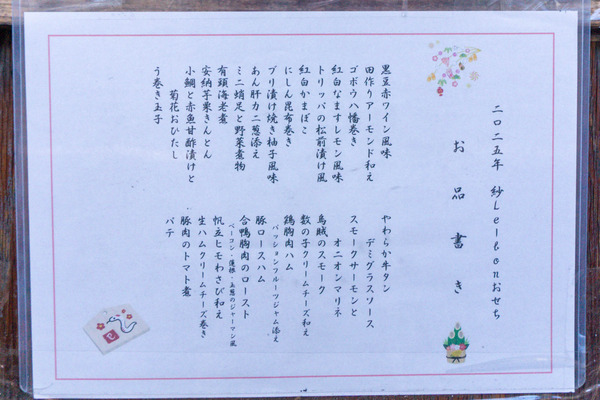 二〇二五年 紗 おせち
お品書き
黒豆赤ワイン風味
田作りアーモンド和え
ゴボウ八幡巻き
紅白なますレモン風味
トリッパの松前漬け風
紅白かまぼこ
にしん昆布巻き
ブリ漬け焼き柚子風味
あん肝カニ葱添え
ミニ蛸足と野菜煮物
有頭海老煮
安納芋栗きんとん
小鯛と赤魚甘酢漬けと
菊花おひたし
う巻き玉子
やわらか牛タン
デミグラスソース
スモークサーモンと
オニオンマリネ
烏賊のスモーク
数の子クリームチーズ和え
鶏胸肉ハム
パッションフルーツジャム添え
豚ロースハム
合鴨胸肉のロースト
ベーコン・蓮根・ のジャーマン風
帆立ヒモわさび和え
生ハムクリームチーズ巻き
豚肉のトマト煮
パテ
巳